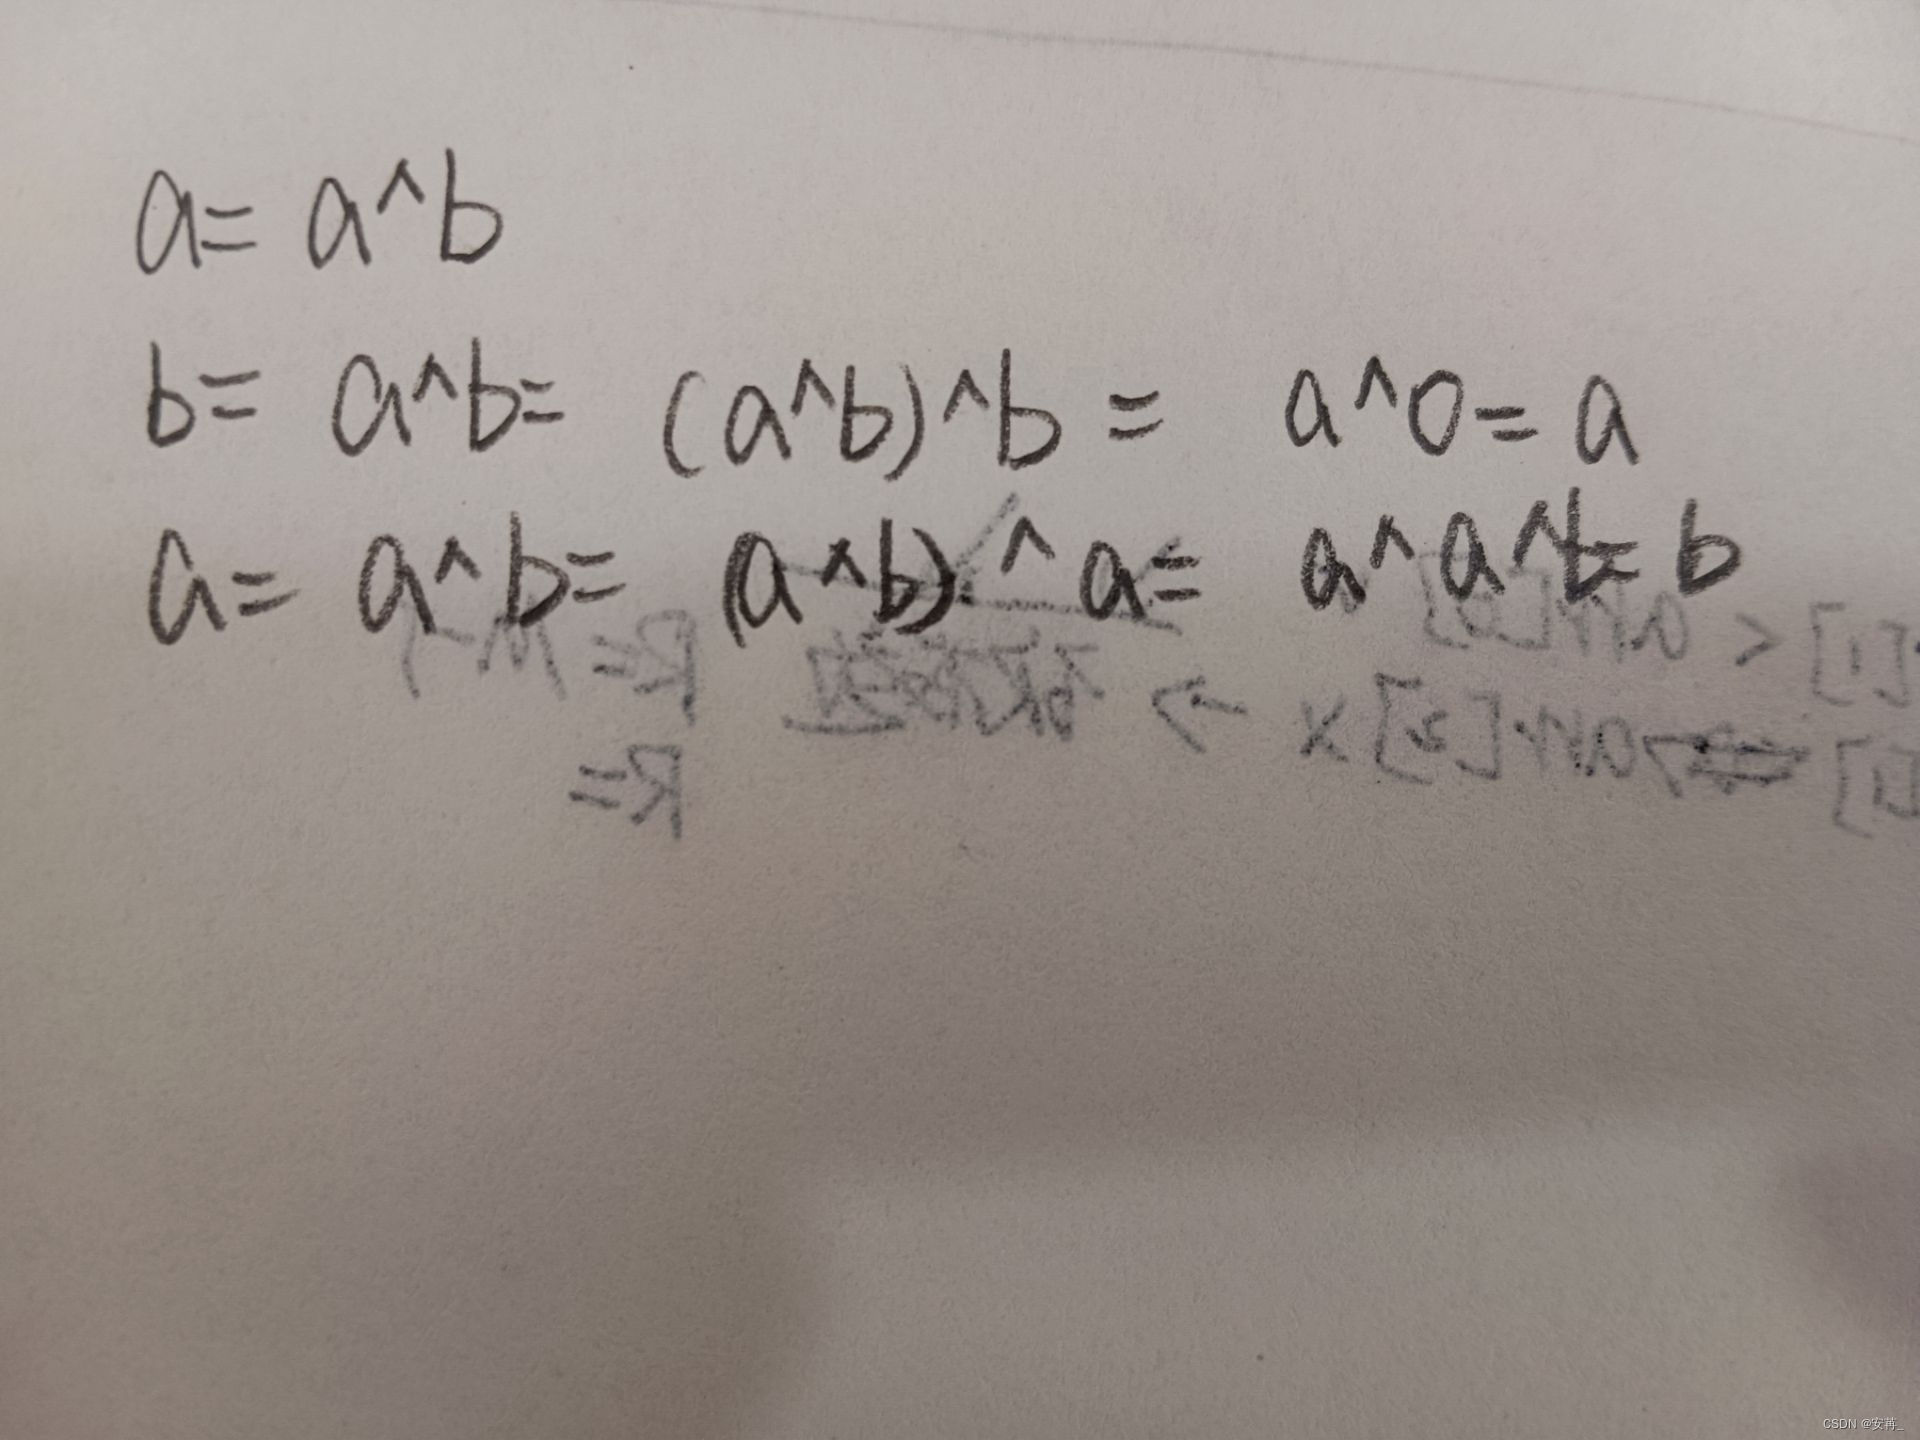 a= a^b
b= a^b= (a^b)^b = a^0= a
a= a^b= (a^b)^a= a^a^b= b
R=
CSDN @安苒_